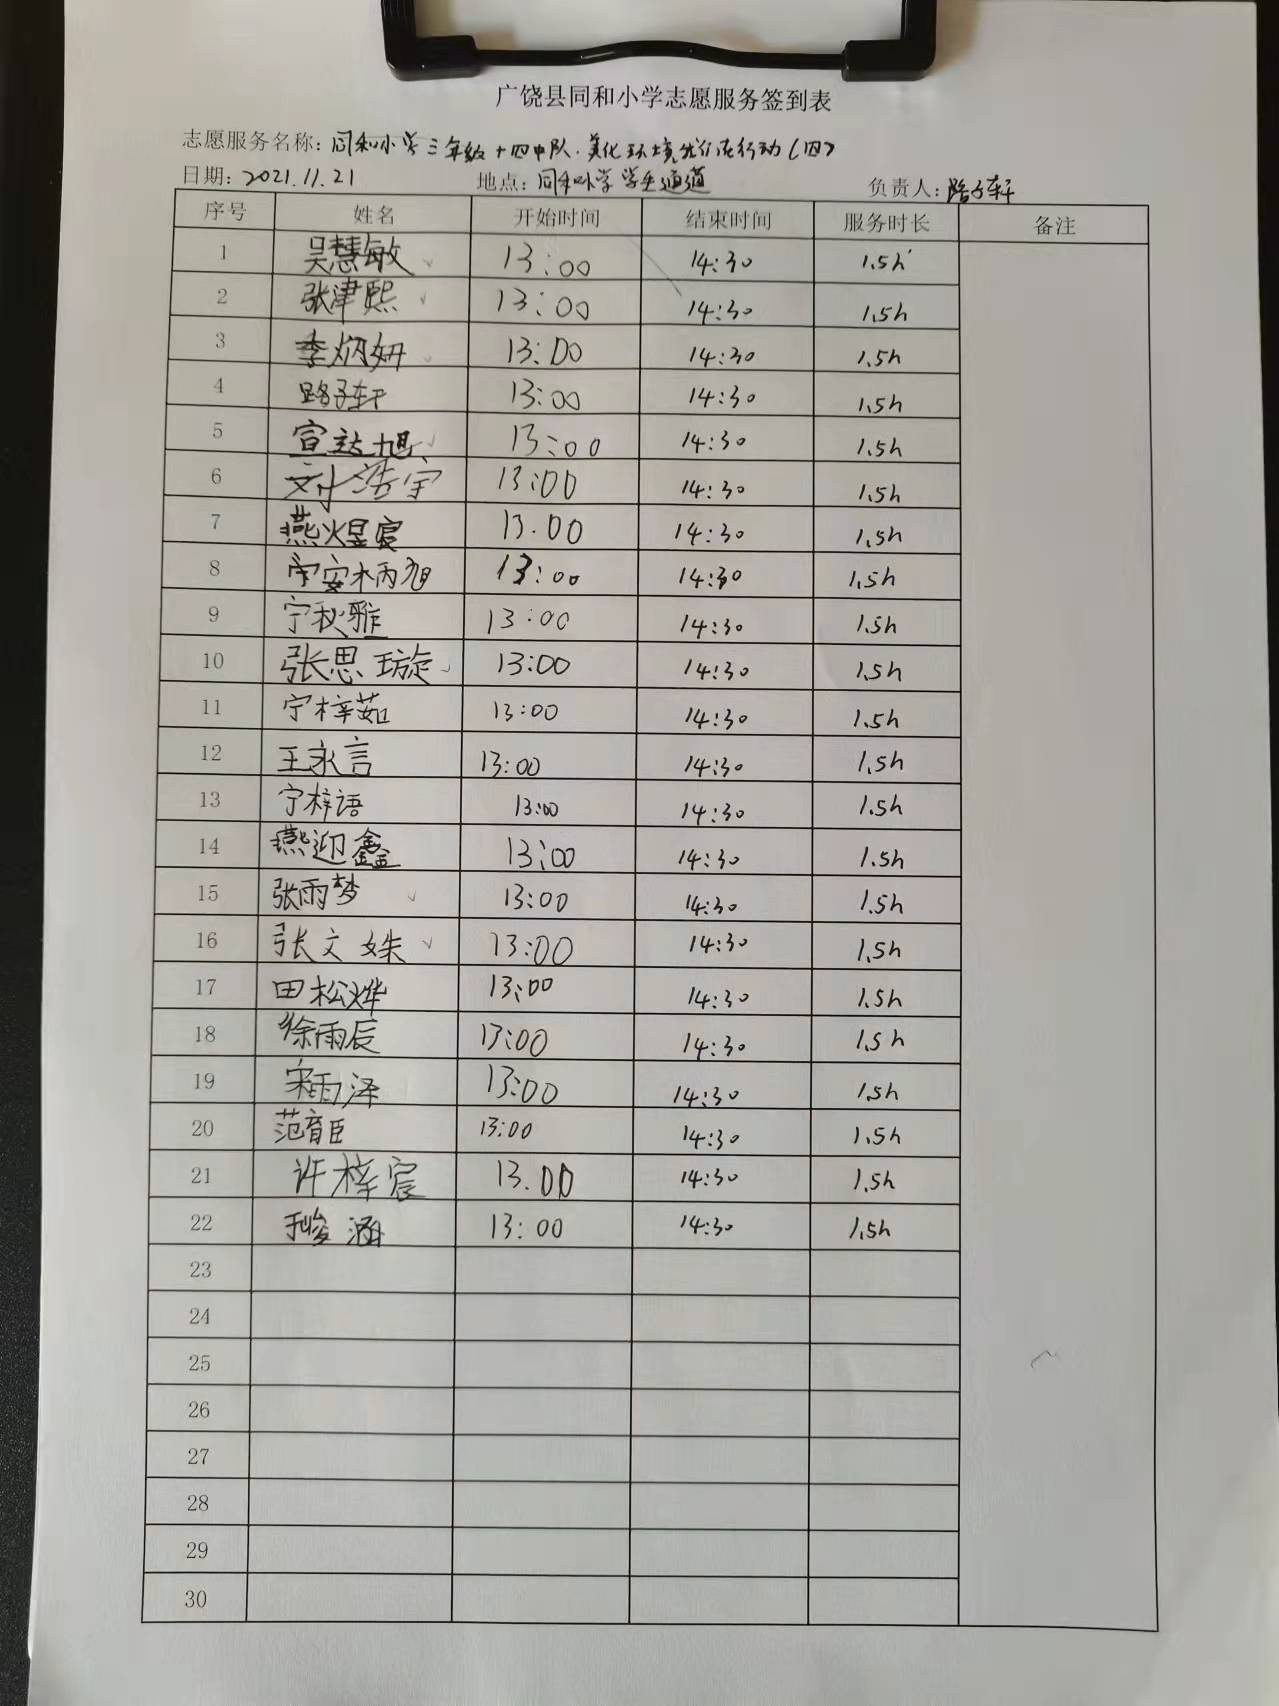 广饶县同和小学志愿服务签到表
志愿服务名称:同和小学三年级十四中队.美化环境 行动(四)
日期:2021.11.21 地点:同和小学学生通道 负责人:路子轩
序号 姓名 开始时间 结束时间 服务时长 备注
1 吴慧敏 13:00 14:30 1.5h
2 张津熙 13:00 14:30 1.5h
3 李炳妍 13:00 14:30 1.5h
4 路子轩 13:00 14:30 1.5h
5 宣达旭 13:00 14:30 1.5h
6 刘浩宇 13:00 14:30 1.5h
7 燕煜宸 13.00 14:30 1.5h
8 宁安柄旭 13:00 14:30 1.5h
9 宁秋雅 13:00 14:30 1.5h
10 张思璇 13:00 14:30 1.5h
11 宁梓茹 13:00 14:30 1.5h
12 王永言 13:00 14:30 1.5h
13 宁梓语 13:00 14:30 1.5h
14 燕迎鑫 13:00 14:30 1.5h
15 张雨梦 13:00 14:30 1.5h
16 张文姝 13:00 14:30 1.5h
17 田松烨 13:00 14:30 1.5h
18 徐雨辰 13:00 14:30 1.5h
19 宋雨泽 13:00 14:30 1.5h
20 范育臣 13:00 14:30 1.5h
21 许梓宸 13.00 14:30 1.5h
22 峻涵 13:00 14:30 1.5h
23
24
25
26
27
28
29
30